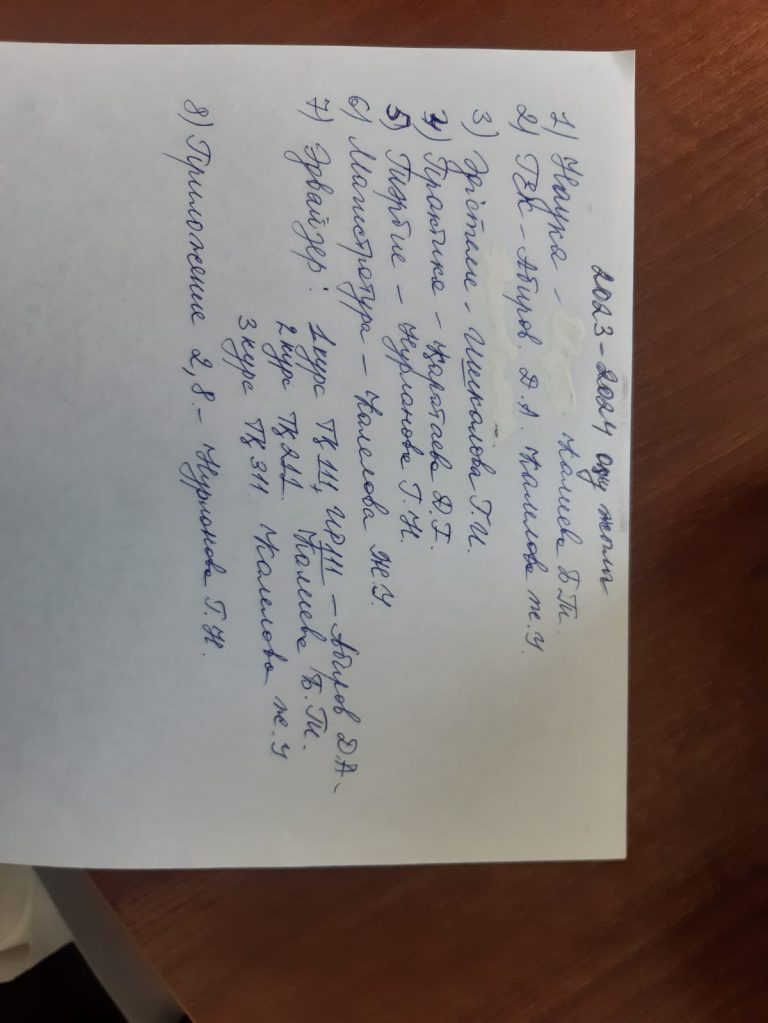 2023-2024 оқу жылы
1) Наука - Калиева Б.Т.
2) ГЭК - Абиров Д.А. Калелова Ж.У.
3) Әдістеме - Искалова Г.И.
4) Практика - Қаратаева Д.Г.
5) Тәрбие - Нурланова Г.Н.
6) Магистратура - Калелова Ж.У.
7) Эдвайзер: 1 курс ТҚ 111, ИР111 - Абиров Д.А.
2 курс ТҚ 211 Калиева Б.Т.
3 курс ТҚ 311 Калелова Ж.У
8) Приложение 2, 8. - Нурланова Г.Н.